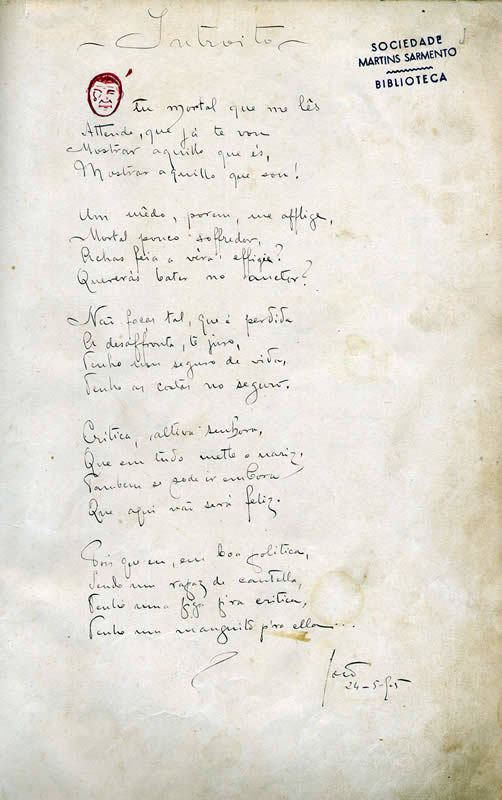 Introito
SOCIEDADE
MARTINS SARMENTO
BIBLIOTECA
Ó tu mortal que me lês
Attende, que já te vou
Mostrar aquillo que és,
Mostrar aquillo que sou!
Um mêdo, porem, me afflige,
Mortal pouco soffredor,
Achas feia a vera effigie?
Quererás bater no auctor?
Não faças tal, que é perdida
A desaffronta, te juro,
Tenho um seguro de vida,
Tenho as costas no seguro.
Critica, altiva senhora,
Que em tudo mette o nariz,
Tambem se pode ir embora
Que aqui não será feliz.
Pois que eu, em boa politica,
Sendo um rapaz de cautella,
Tenho uma figa p'ra critica,
Tenho um manguito p'ra ella...
24-5-